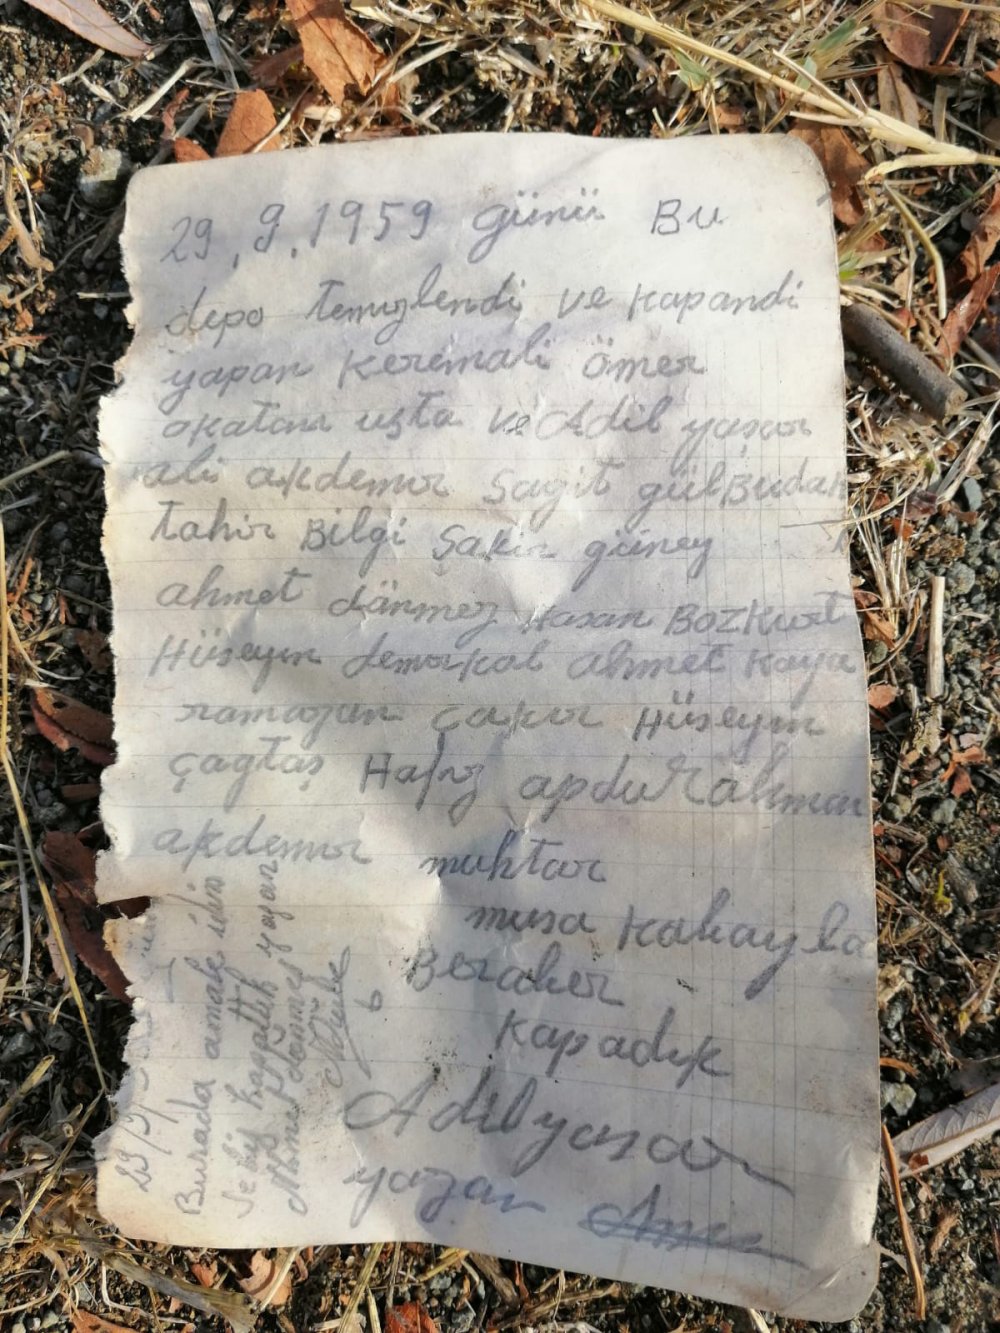 29.9.1959 günü Bu
depo temizlendi ve kapandi
yapan keremali ömer
okatan usta ve Adil yaşar
ali akdemir Sagit gülBudak
tahir Bilgi Şakir güney
ahmet dänmez Hasan Bozkurt
Hüseyin demirkal ahmet kaya
ramazan çakir Hüseyin
çagtaş Hafız apdurahman
akdemir muhtar
musa kahayla
Beraber
kapadık
Adil yasar
yazan
29/9/
Burada amale idim
ve biz kapattık yazan
Ahmet Dönmez